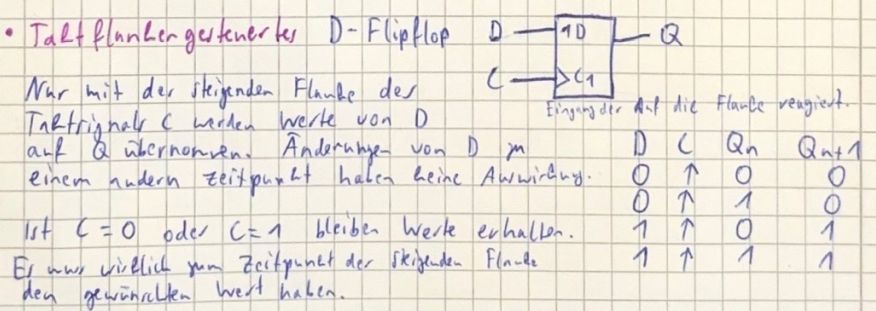 • Taktflankengesteuertes D-Flipflop
D 1D Q
C C1
Eingang der Auf die Flanke reagiert.
Nur mit der steigenden Flanke des
Taktsignals C werden Werte von D
auf Q übernommen. Änderungen von D zu
einem andern Zeitpunkt haben keine Auswirkung.
Ist C = 0 oder C = 1 bleiben Werte erhalten.
Es muss wirklich zum Zeitpunkt der steigenden Flanke
den gewünschten Wert haben.
D C Qn Qn+1
0 ↑ 0 0
0 ↑ 1 0
1 ↑ 0 1
1 ↑ 1 1